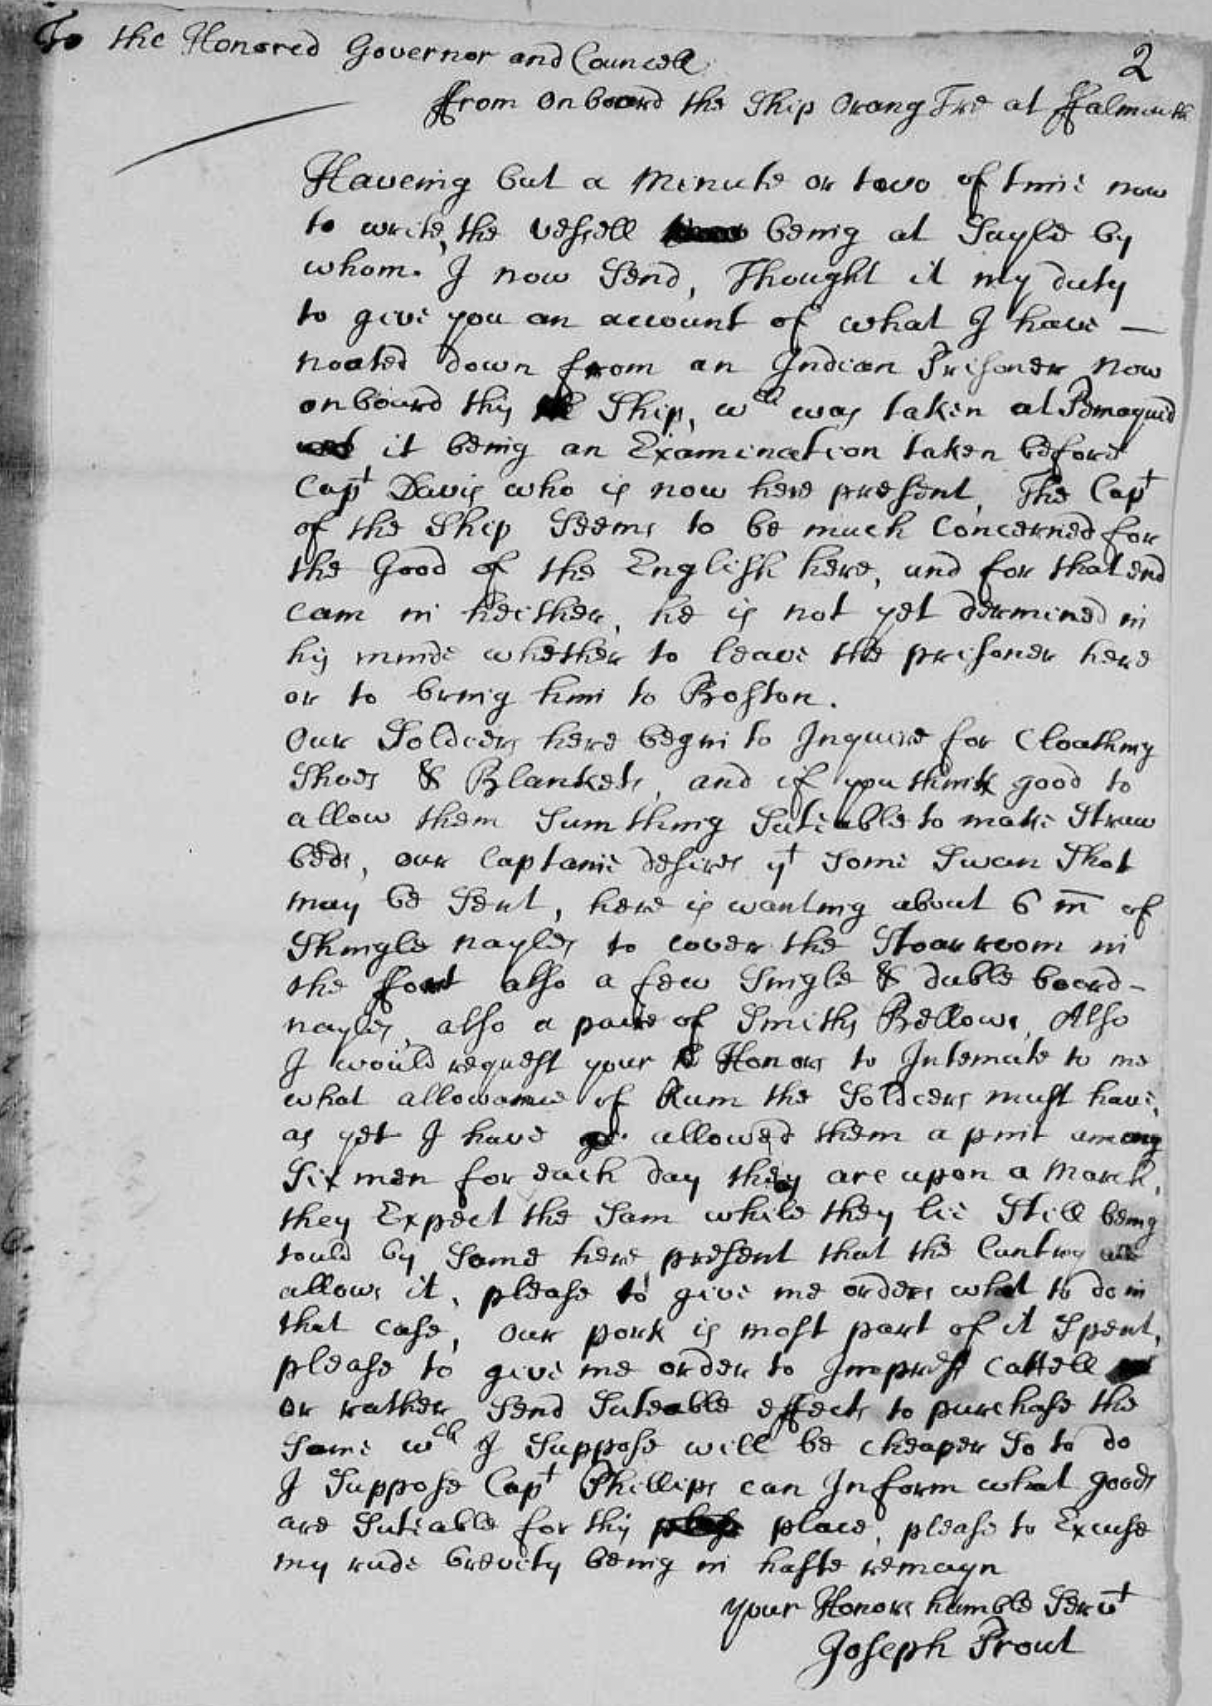 2
To the Honored Governor and Councell
ffrom on board the Ship Orang Tre at ffalmouth
Haveing but a Minute or two of time now
to write, the vessell being at Sayle by
whom I now Send, Thought it my duty
to give you an account of what I have —
noated down from an Indian Prisoner now
onboard this Ship, wch was taken at Pemaquid
it being an Examination taken before
Capt Davis who is now here present, The Capt
of the Ship Seems to be much Concerned for
the Good of the English here, and for that end
cam in heither, he is not yet dermined in
his minde whether to leave the prisoner here
or to bring him to Boston.
Our Soldiers here begin to Inquire for Cloathing
Shoes & Blankets, and if you think good to
allow them Sum thing Sutiable to make Straw
beds, our Captaine desires yt Some Swan Shot
may be Sent, here is wanting about 6 m of
Shingle nayles to cover the Stoar room in
the ffort also a few Single & duble board-
nayles, also a paire of Smiths Bellows, Also
I would request your Honors to Intemate to me
what allowance of Rum the Soldiers must have,
as yet I have allowed them a pint among
Six men for each day they are upon a March,
they Expect the Sam while they lie Still being
tould by Some here present that the Cuntrey
allows it, please to give me orders what to do in
that case, Our pork is most part of it Spent,
please to give me order to Impress Cattell
or rather Send Suteable effects to purchase the
Same wch I Suppose will be cheaper So to do
I Suppose Capt Phillips can Inform what goods
are Sutiable for this place, please to Excuse
my rude brevity being in haste remayn
your Honors humble Servt
Joseph Prout